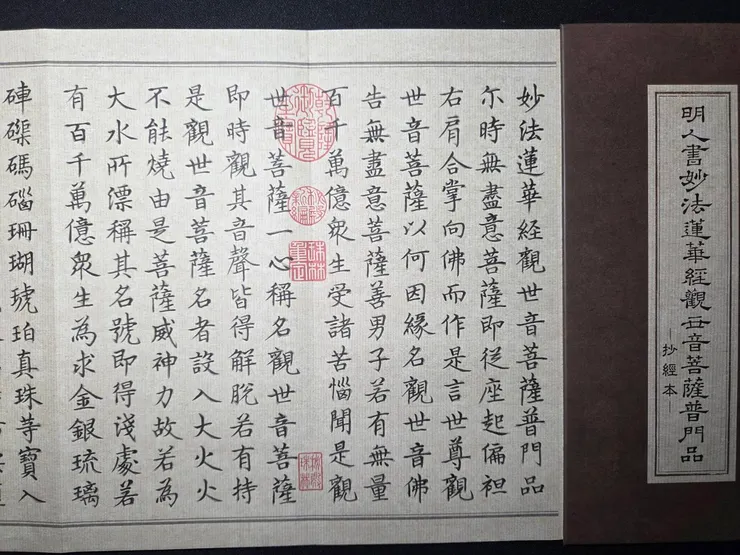 明人書妙法蓮華經觀世音菩薩普門品
—抄經本—
妙法蓮華經觀世音菩薩普門品
尒時無盡意菩薩即從座起偏袒
右肩合掌向佛而作是言世尊觀
世音菩薩以何因緣名觀世音佛
告無盡意菩薩善男子若有無量
百千萬億眾生受諸苦惱聞是觀
世音菩薩一心稱名觀世音菩薩
即時觀其音聲皆得解脫若有持
是觀世音菩薩名者設入大火火
不能燒由是菩薩威神力故若為
大水所漂稱其名號即得淺處若
有百千萬億眾生為求金銀琉璃
硨磲碼碯珊瑚琥珀真珠等寶入